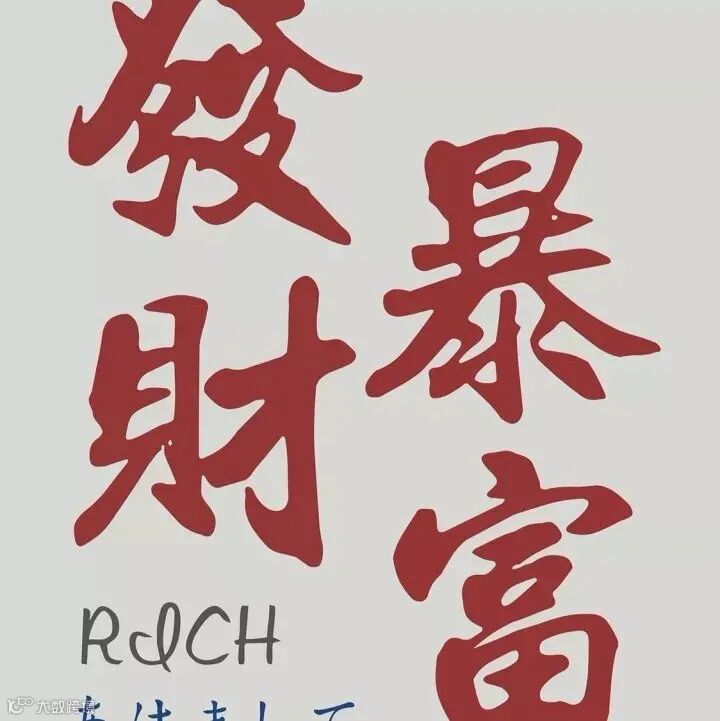 發財
暴富
RICH
大数跨境